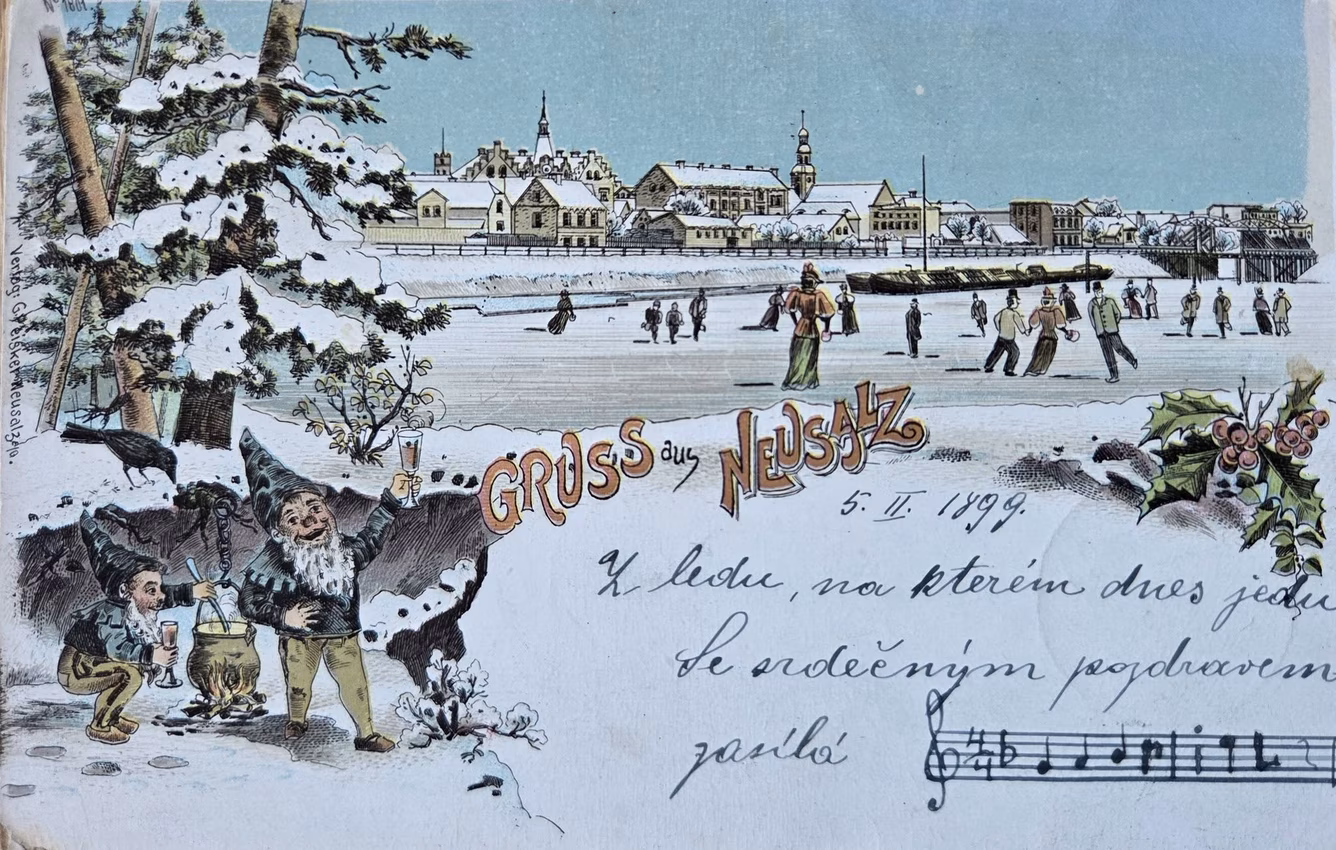 No 1801
Verlag G. Gröskerr Neusalz a/O.
GRUSS aus NEUSALZ
5. II. 1899.
Z ledu, na kterém dnes jedu
Se srdečným pozdravem
zasílá